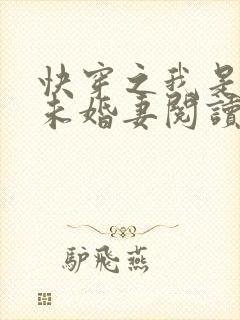 快穿之我是
未婚妻閱讀
驴飛燕